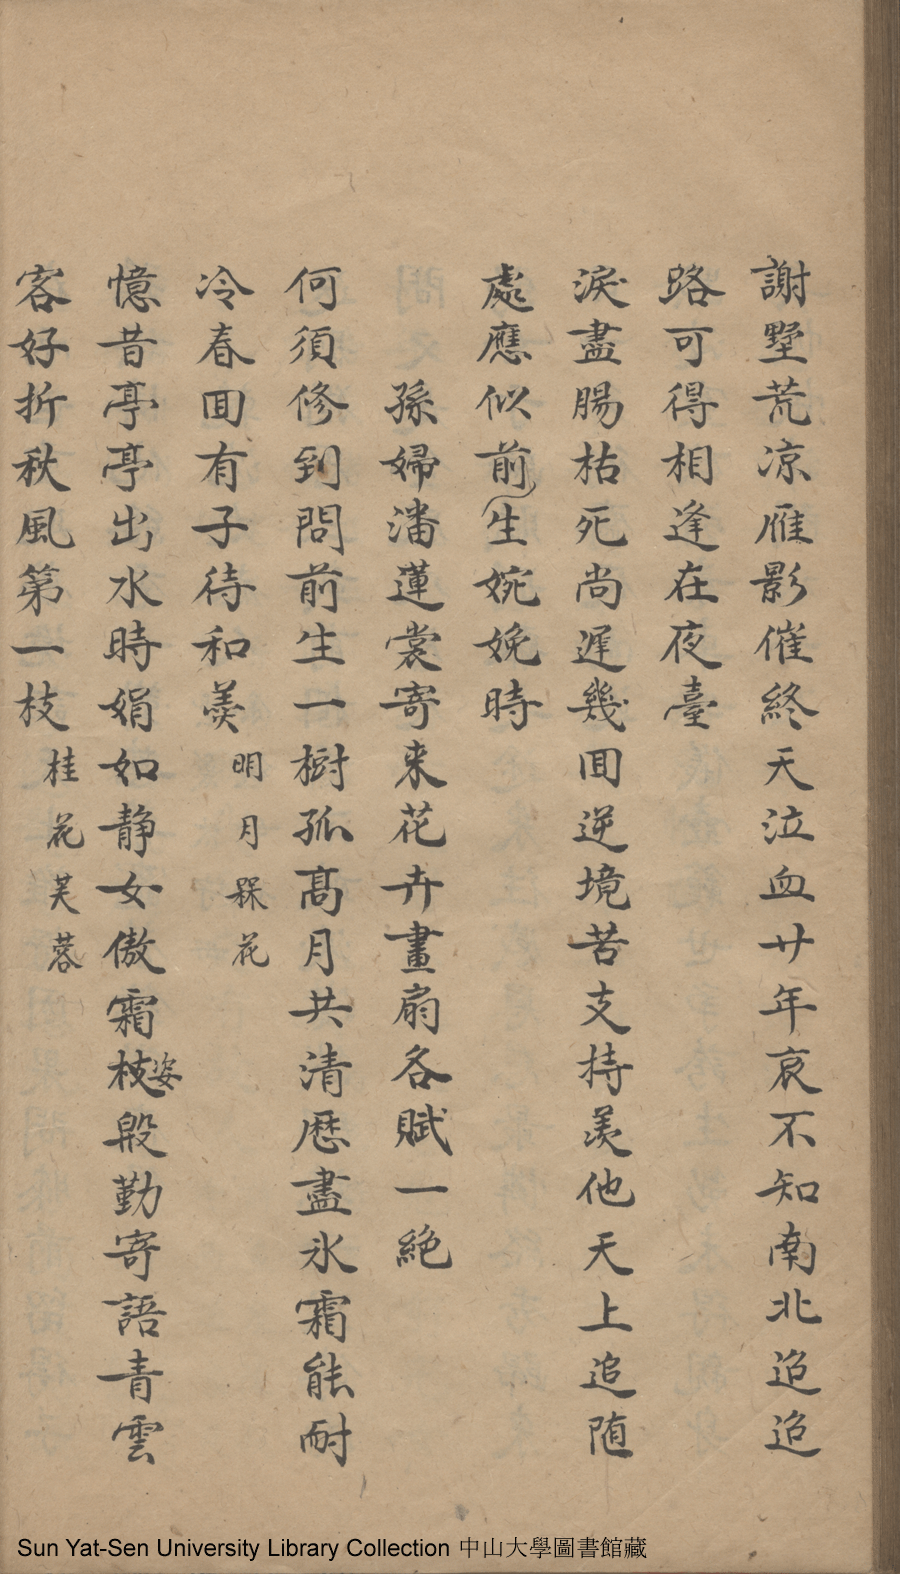 謝墅荒凉雁影催終天泣血廿年哀不知南北迢迢
路可得相逢在夜臺
淚盡腸枯死尚遲幾囬逆境苦支持羨他天上追随
處應似前生婉娩時
孫婦潘蓮裳寄来花卉畫扇各賦一絶
何須修到問前生一樹孤高月共清歴盡氷霜能耐
冷春囬有子待和羹 明月槑花
憶昔亭亭出水時娟如静女傲霜枝姿殷勤寄語青雲
客好折秋風第一枝 桂花芙蓉
Sun Yat-Sen University Library Collection 中山大學圖書館藏